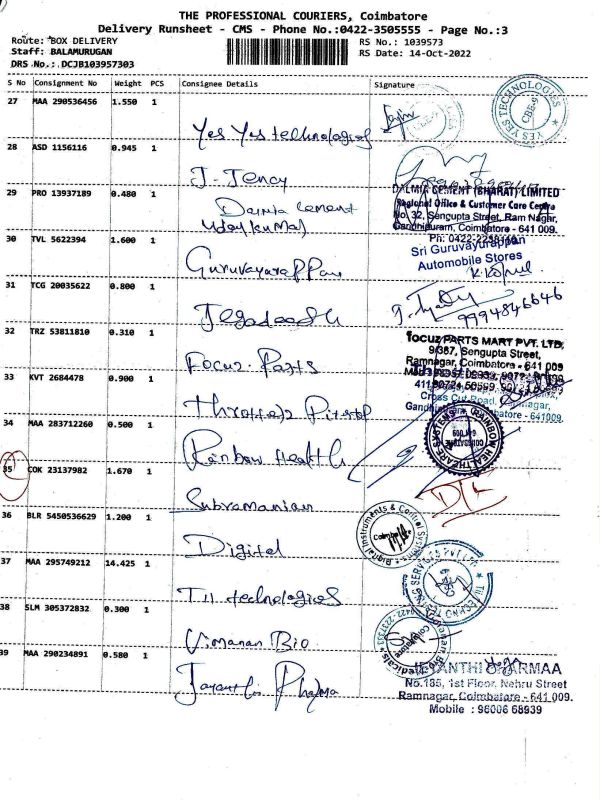 THE PROFESSIONAL COURIERS, Coimbatore
Delivery Runsheet - CMS - Phone No.:0422-3505555 - Page No.:3
Route: BOX DELIVERY
RS No.: 1039573
Staff: BALAMURUGAN
RS Date: 14-Oct-2022
DRS No.: DCJB103957303
S No Consignment No Weight PCS Consignee Details Signature
27 MAA 290536456 1.550 1
Yes Yes technologies
YES YES TECHNOLOGIES
CBE-9
28 ASD 1156116 0.945 1
J. Jency
29 PRO 13937189 0.480 1
Dalmia cement
Udaykumar
DALMIA CEMENT (BHARAT) LIMITED
Regional Office & Customer Care Centre
No. 32, Sengupta Street, Ram Nagar,
Gandhipuram, Coimbatore - 641 009.
30 TVL 5622394 1.600 1
Guruvayurappan
Sri Guruvayurappan
Automobile Stores
31 TCG 20035622 0.800 1
Jegadeesh
9994846646
32 TRZ 53811810 0.310 1
Focuz. Parts
focuz PARTS MART PVT. LTD,
9/387, Sengupta Street,
Ramnagar, Coimbatore - 641 009
33 KVT 2684478 0.900 1
Cross Cut Road,
Coimbatore - 641009.
34 MAA 283712260 0.500 1
Rainbow Health
RAINBOW HEALTHCARE SYSTEMS
35 COK 23137982 1.670 1
Subramanian
36 BLR 5450536629 1.200 1
Digital
Digital Instruments & Control Systems
Coimbatore
37 MAA 295749212 14.425 1
TII technologies
38 SLM 305372832 0.300 1
Vimanan Bio
39 MAA 290234891 0.580 1
Jayanthi Pharma
JEYANTHI PHARMAA
No.185, 1st Floor, Nehru Street
Ramnagar, Coimbatore - 641 009.
Mobile : 96006 68939